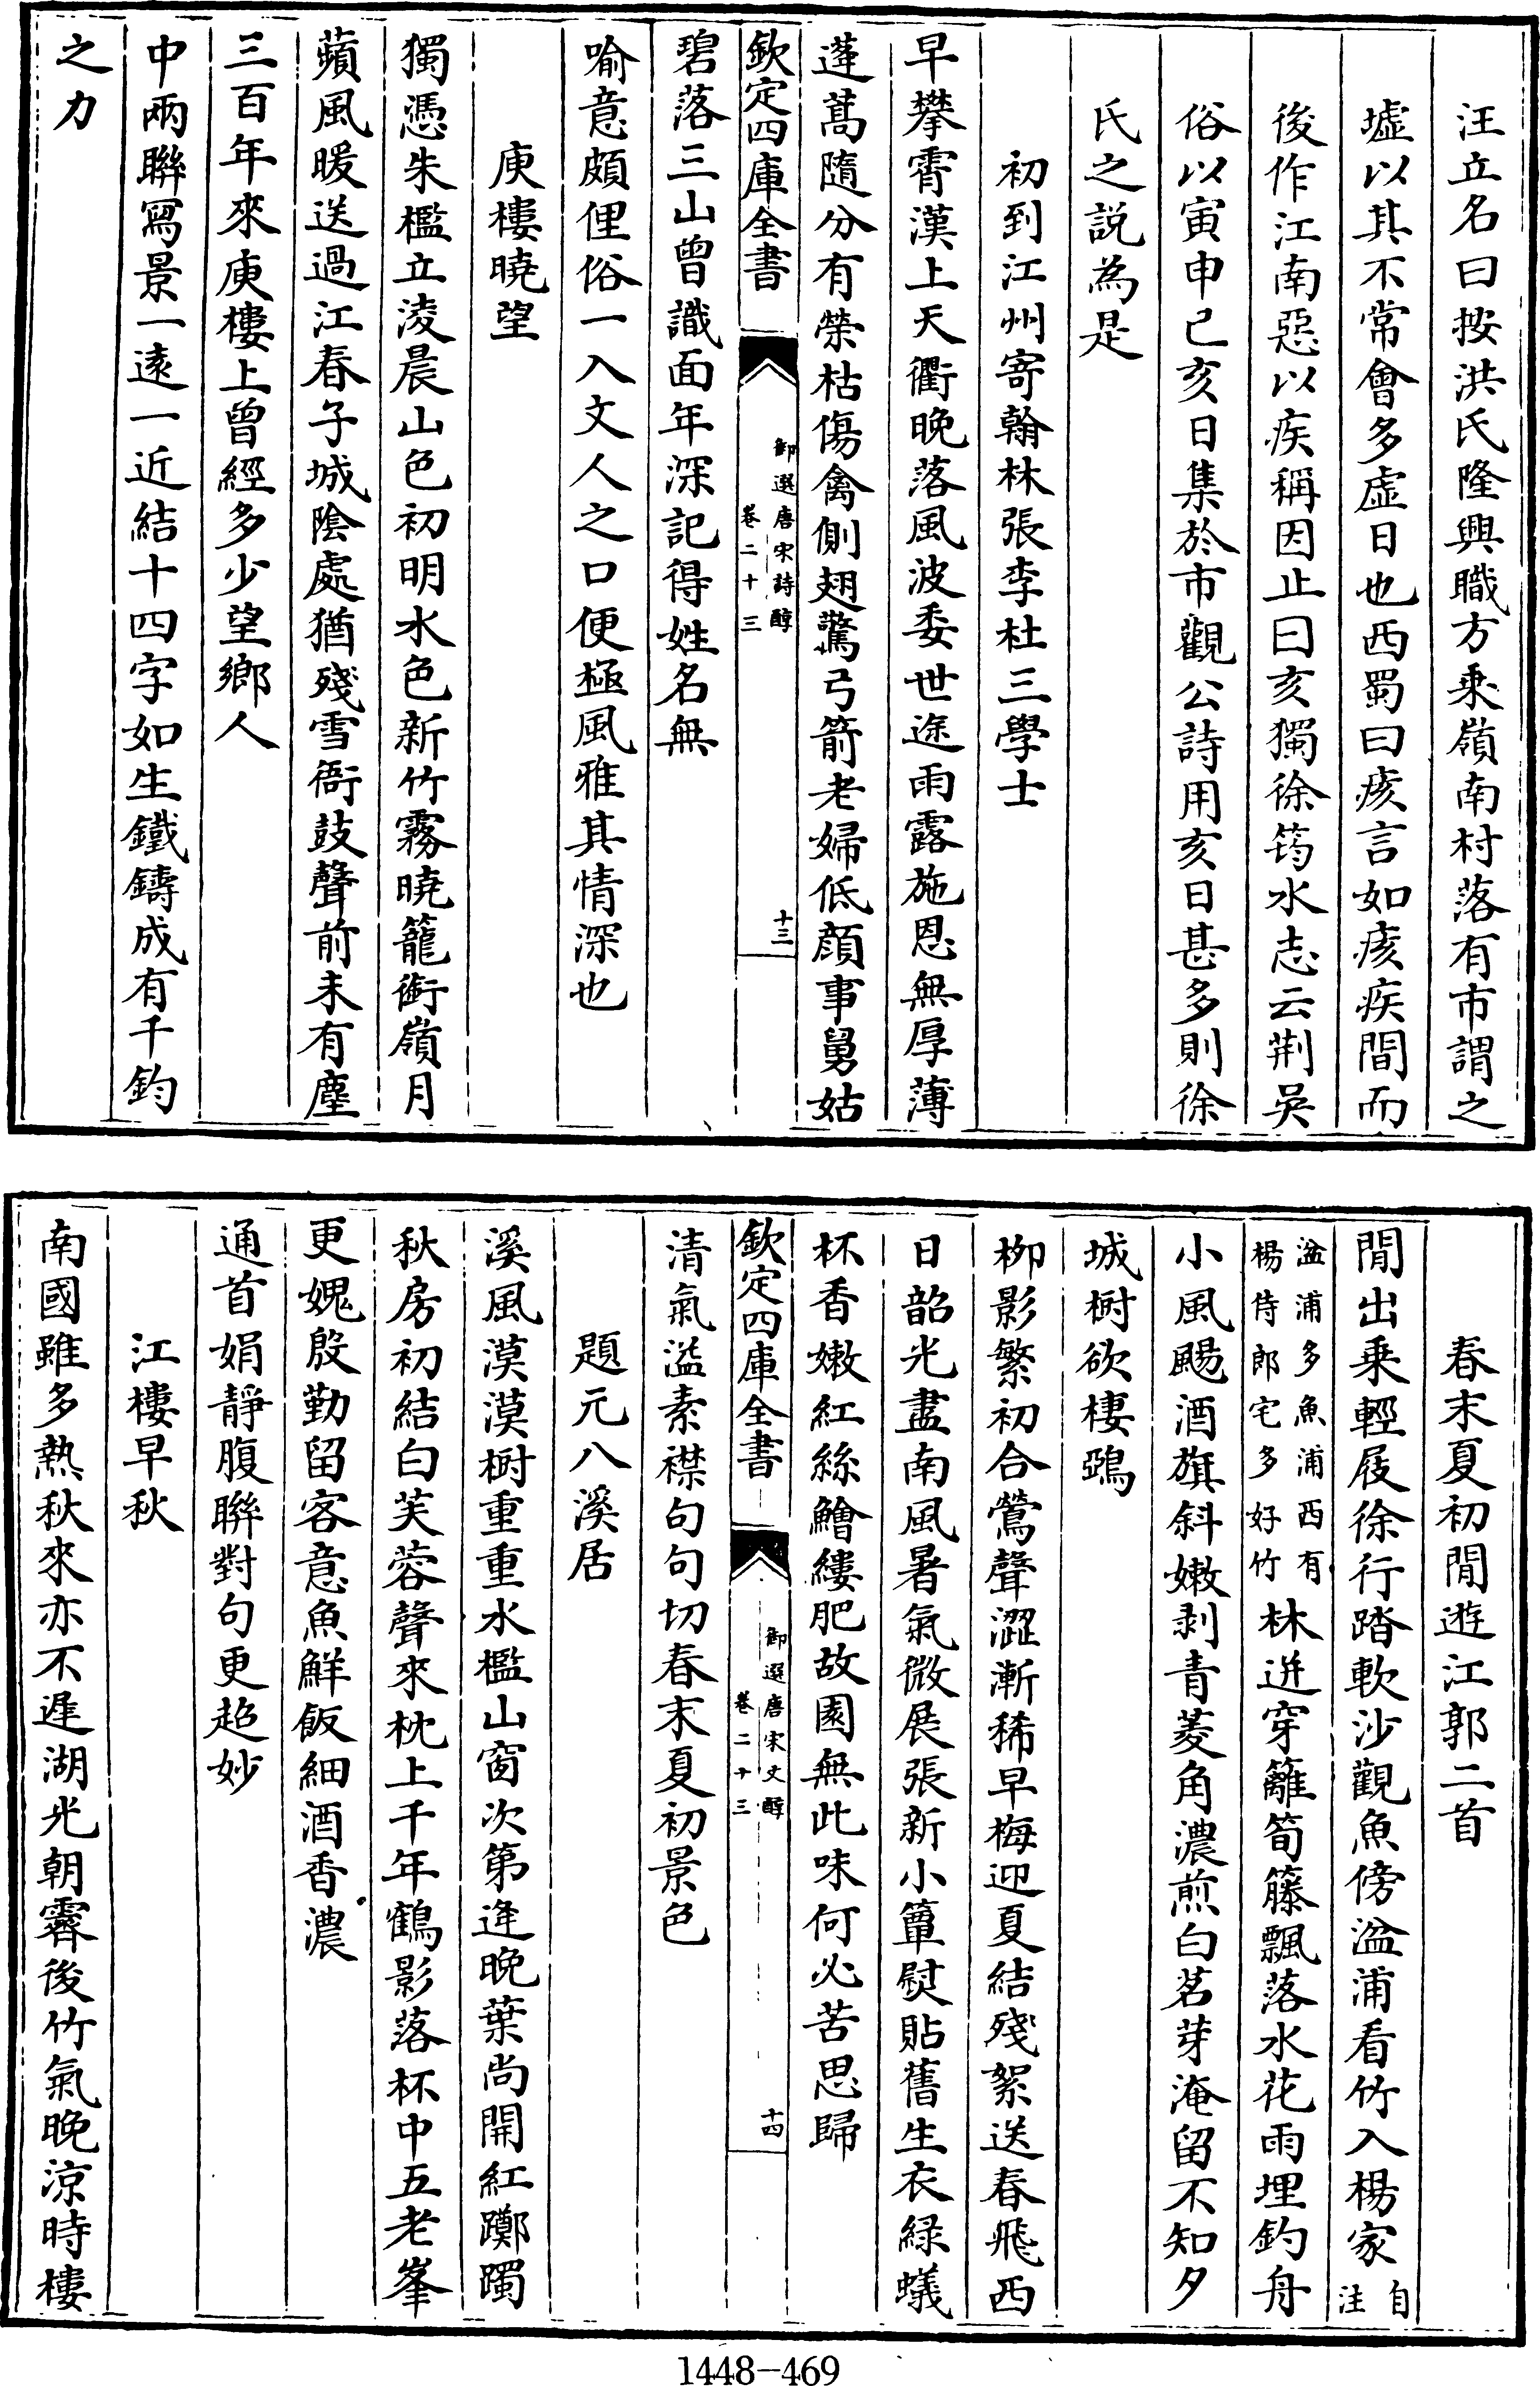 汪立名曰按洪氏隆興職方乗嶺南村落有市謂之
墟以其不常會多虛日也西蜀曰痎言如痎疾間而
後作江南惡以疾稱因止曰亥獨徐筠水志云荆吳
俗以寅申巳亥日集於市觀公詩用亥日甚多則徐
氏之説為是
初到江州寄翰林張李杜三學士
早攀霄漢上天衢晚落風波委世途雨露施恩無厚薄
蓬蒿隨分有榮枯傷禽側翅驚弓箭老婦低顔事舅姑
欽定四庫全書
御選唐宋詩醇
卷二十三
十三
碧落三山曾識面年深記得姓名無
喻意頗俚俗一入文人之口便極風雅其情深也
庾樓曉望
獨憑朱檻立淩晨山色初明水色新竹霧曉籠銜嶺月
蘋風暖送過江春子城陰處猶殘雪衙鼓聲前未有塵
三百年來庾樓上曾經多少望鄉人
中兩聨冩景一遠一近結十四字如生鐵鑄成有千鈞
之力
春末夏初閒遊江郭二首
閒出乗輕屐徐行踏軟沙觀魚傍湓浦看竹入楊家自注
湓浦多魚浦西有楊侍郎宅多好竹林迸穿籬筍藤飄落水花雨埋釣舟
小風颺酒旗斜嫩剥青菱角濃煎白茗芽淹留不知夕
城樹欲棲鴉
栁影繁初合鶯聲澀漸稀早梅迎夏結殘絮送春飛西
日韶光盡南風暑氣微展張新小簟熨貼舊生衣緑蟻
杯香嫩紅絲鱠縷肥故園無此味何必苦思歸
欽定四庫全書
御選唐宋文醇
卷二十三
十四
清氣溢素襟句句切春末夏初景色
題元八溪居
溪風漠漠樹重重水檻山窗次第逢晩葉尚開紅躑躅
秋房初結白芙蓉聲來枕上千年鶴影落杯中五老峯
更媿殷勤留客意魚鮮飯細酒香濃
通首娟靜腹聨對句更超妙
江樓早秋
南國雖多熱秋來亦不遲湖光朝霽後竹氣晚涼時樓
1448-469